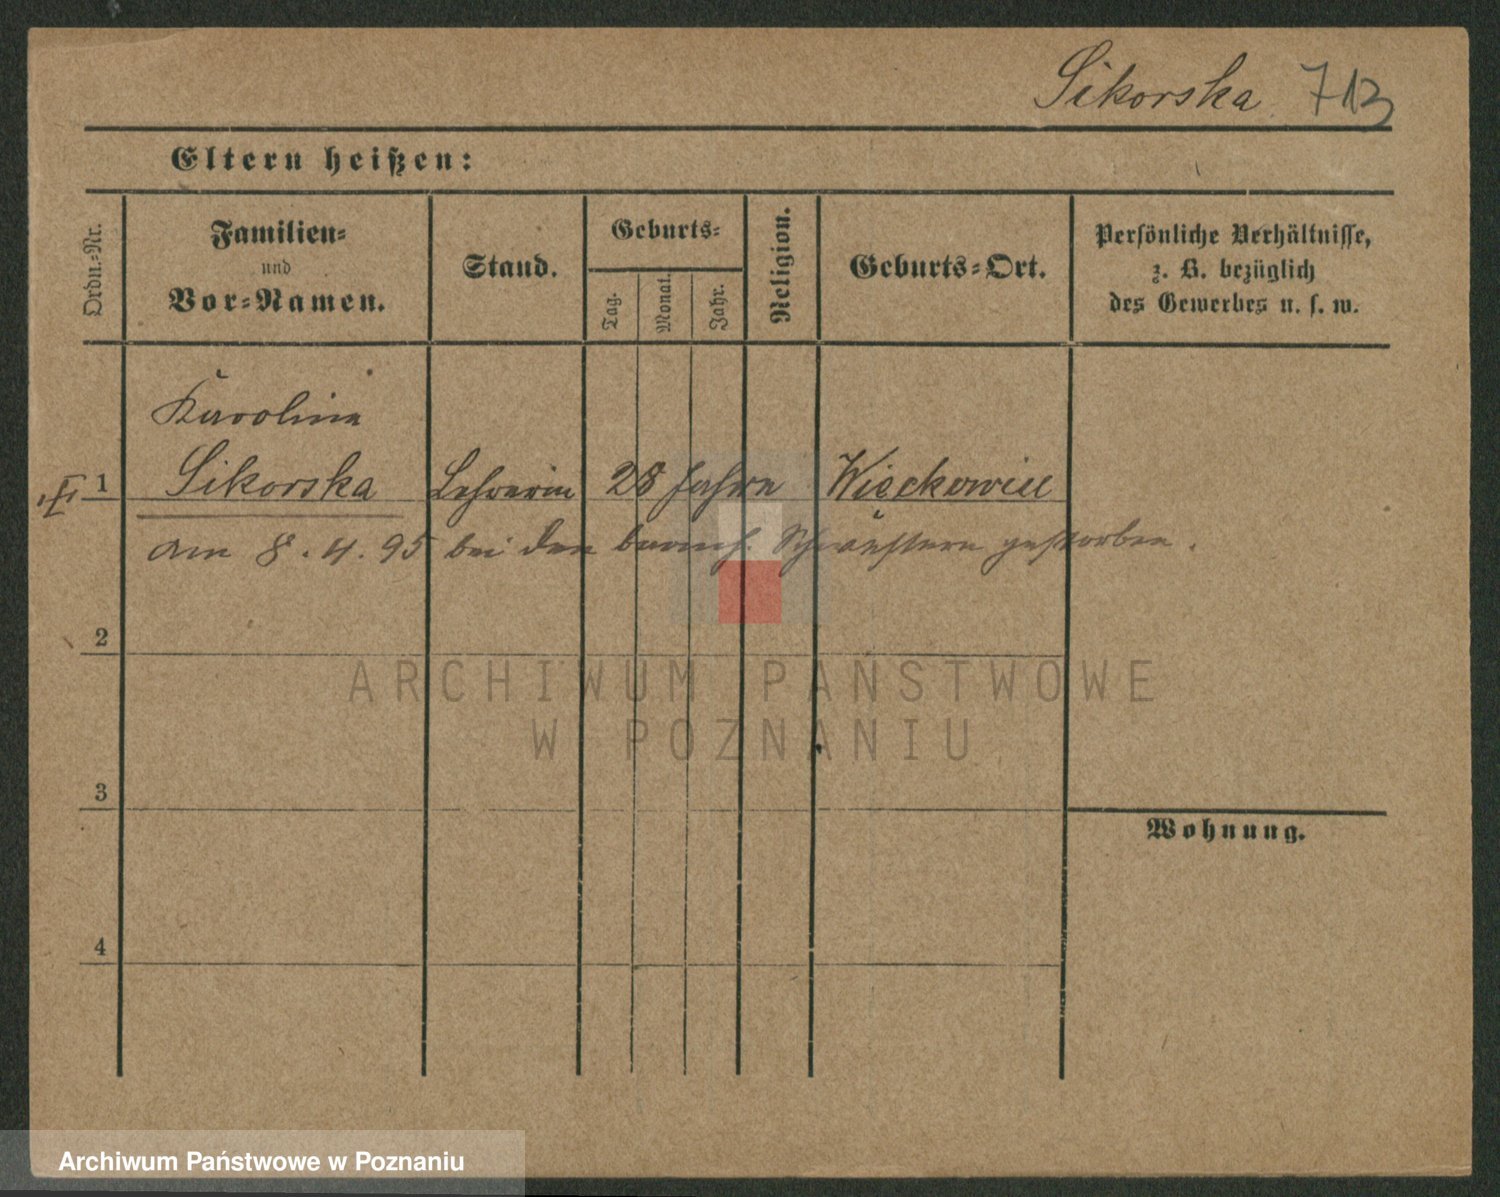 Sikorska 713
Eltern heißen:
Ordn.-Nr.
Familien-
und
Vor-Namen.
Stand.
Geburts-
Tag.
Monat.
Jahr.
Religion.
Geburts-Ort.
Persönliche Verhältnisse,
z. B. bezüglich
des Gewerbes u. s. w.
Karolina
1 Sikorska Lehrerin 28 Jahre
am 8.4.95 bei den barmh. Schwestern gestorben.
2
3
Wohnung.
4
ARCHIWUM PAŃSTWOWE
W POZNANIU
Archiwum Państwowe w Poznaniu